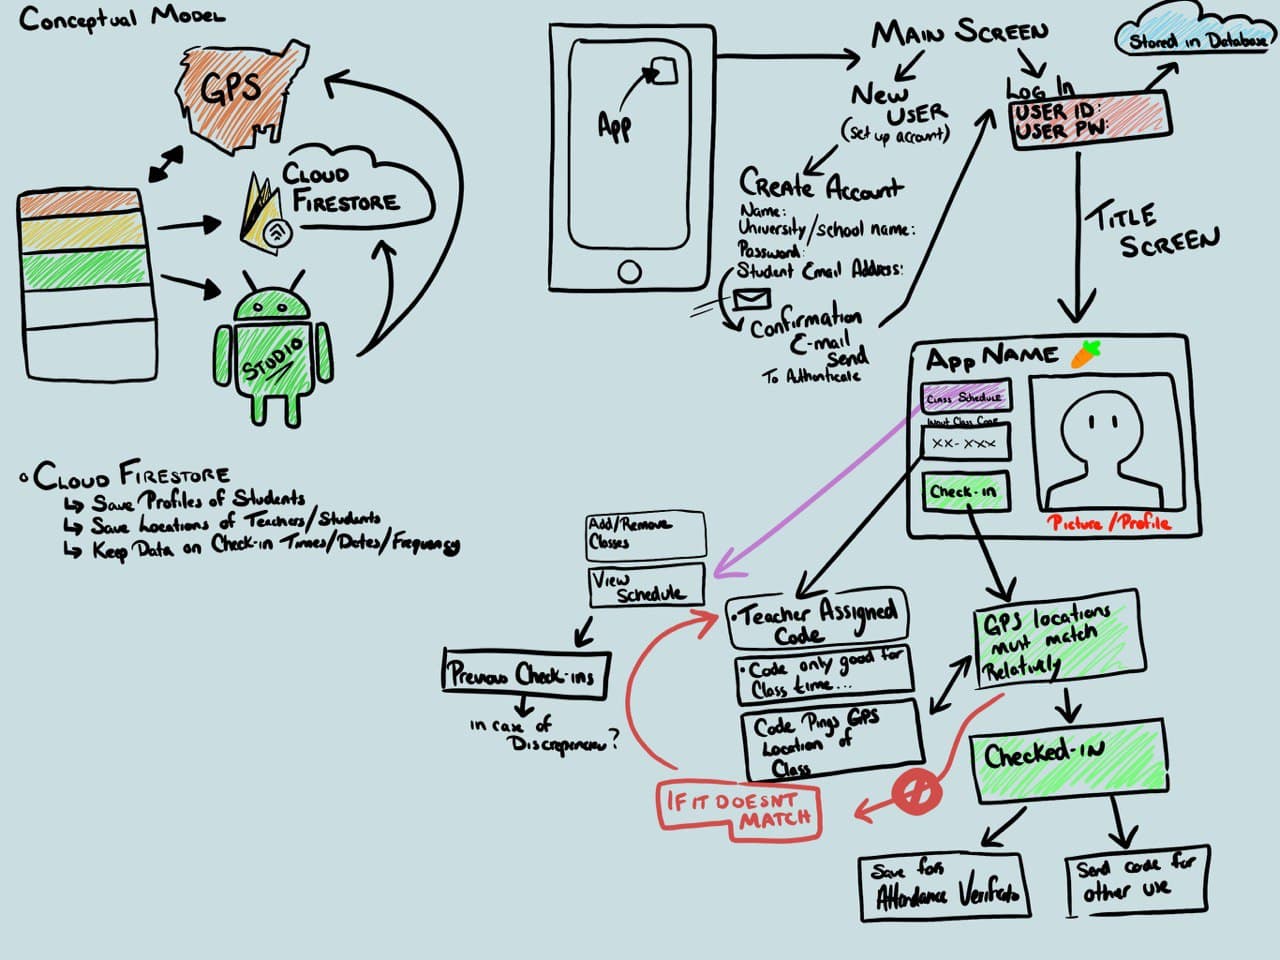 Conceptual Model
GPS
Cloud
Firestore
Studio
• Cloud Firestore
↳ Save Profiles of Students
↳ Save Locations of Teachers/Students
↳ Keep Data on Check-in Times/Dates/Frequency
App
Main Screen
New
User
(Set up account)
Log In
USER ID:
USER PW:
Stored in Database
Create Account
Name:
University/school name:
Password:
Student Email Address:
Confirmation
E-mail
Send
To Authenticate
Title
Screen
App Name
Class Schedule
Input Class Code
XX-XXX
Check-in
Picture/Profile
Add/Remove
Classes
View
Schedule
Previous Check-ins
in case of
?
• Teacher Assigned
Code
• Code only good for
Class time...
Code Pings GPS
Location of
Class
GPS locations
must match
Relatively
If it doesnt
match
Checked-in
Save for
Attendance
Send code for
other use